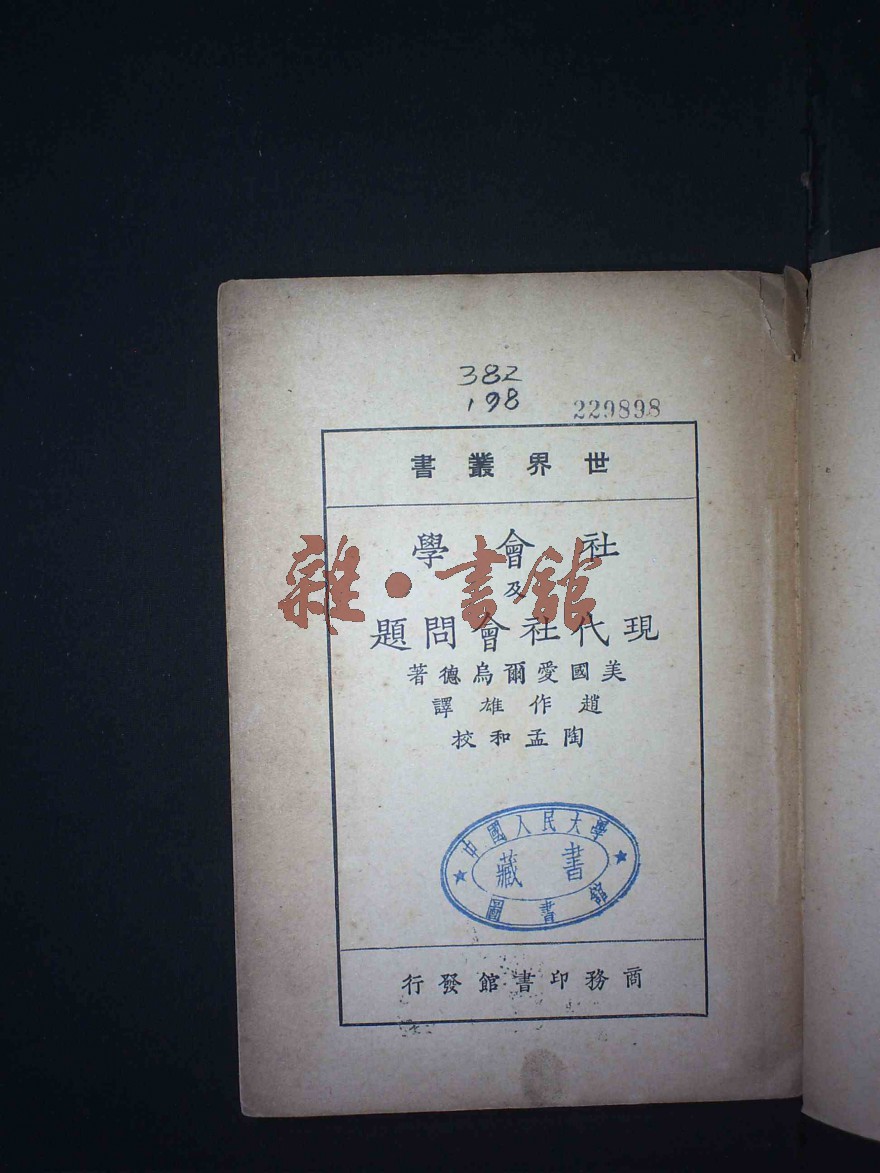 382
198
229898
世界叢書
社會學
及
現代社會問題
美國愛爾烏德著
趙作雄譯
陶孟和校
中國人民大學
藏書
圖書館
商務印書館發行
雜·書館